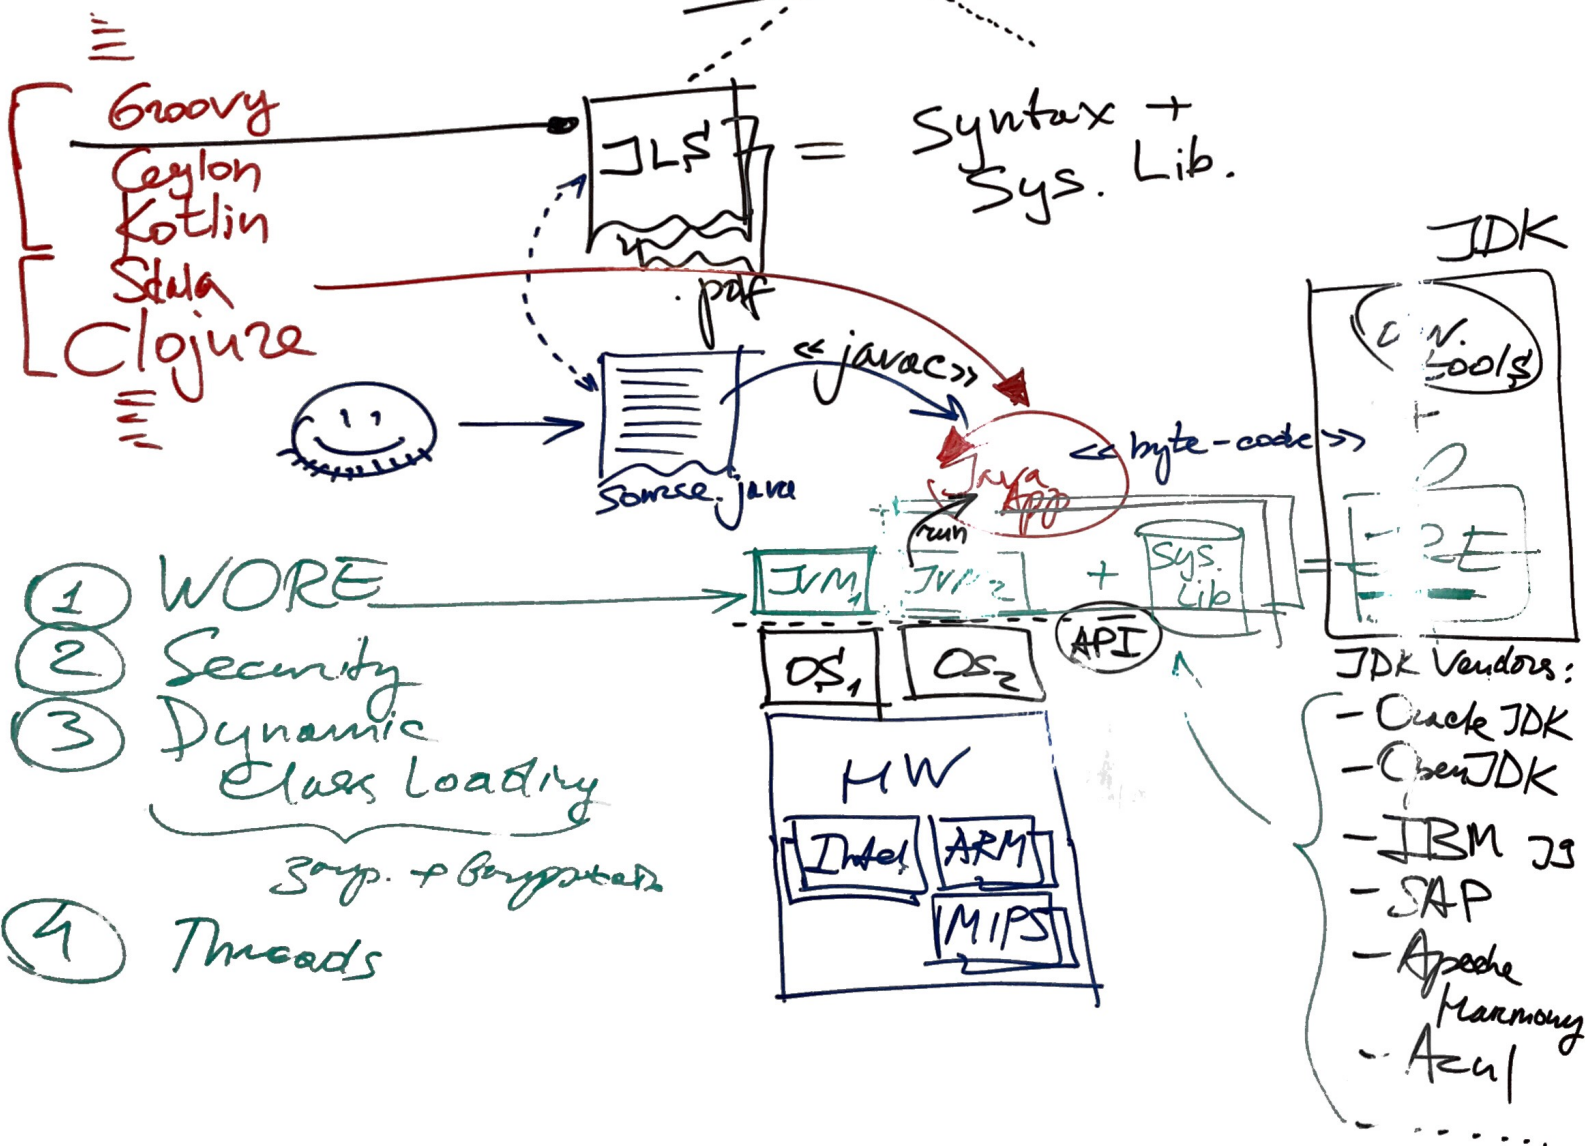 Groovy
Ceylon
Kotlin
Scala
Clojure
JLS
.pdf
=
Syntax +
Sys. Lib.
<< javac >>
source.java
Java
App
<< byte-code >>
run
JDK
tools
+
JRE
=
① WORE
② Security
③ Dynamic
Class Loading
④ Threads
JVM1
JVM2
+
Sys.
Lib
API
OS1
OS2
HW
Intel
ARM
MIPS
JDK Vendors:
- Oracle JDK
- OpenJDK
- IBM J9
- SAP
- Apache
Harmony
- Azul